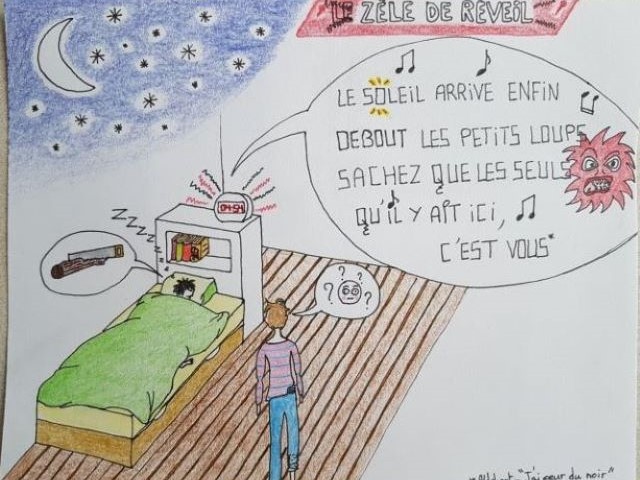 LE ZÈLE DE RÉVEIL
LE SOLEIL ARRIVE ENFIN
DEBOUT LES PETITS LOUPS
SACHEZ QUE LES SEULS
QU'IL Y AIT ICI,
C'EST VOUS*
04:54
ZZZZZZ
? ? ? ?
"J'ai peur du noir"